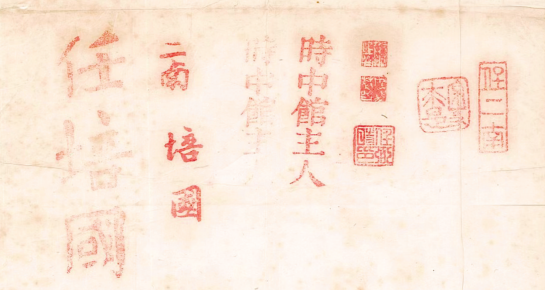 任二南
時中館主人
時中館主
二南
培國
任培國